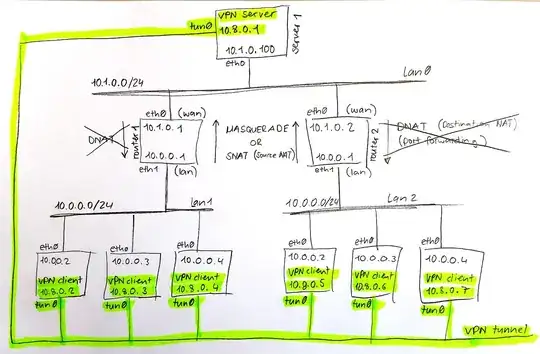 VPN server
10.8.0.1
tun0
10.1.0.100
server 1
eth0
10.1.0.0/24
Lan0
eth0 (wan)
10.1.0.1
10.0.0.1
eth1 (lan)
router 1
DNAT
MASQUERADE
OR
SNAT (Source NAT)
eth0 (wan)
10.1.0.2
10.0.0.1
eth1 (lan)
router 2
DNAT (Destination NAT)
(Port forwarding)
10.0.0.0/24
lan1
10.0.0.0/24
Lan 2
eth0
10.0.0.2
VPN client
10.8.0.2
tun0
eth0
10.0.0.3
VPN client
10.8.0.3
tun0
eth0
10.0.0.4
VPN client
10.8.0.4
tun0
eth0
10.0.0.2
VPN client
10.8.0.5
tun0
eth0
10.0.0.3
VPN client
10.8.0.6
tun0
eth0
10.0.0.4
VPN client
10.8.0.7
tun0
VPN tunnel